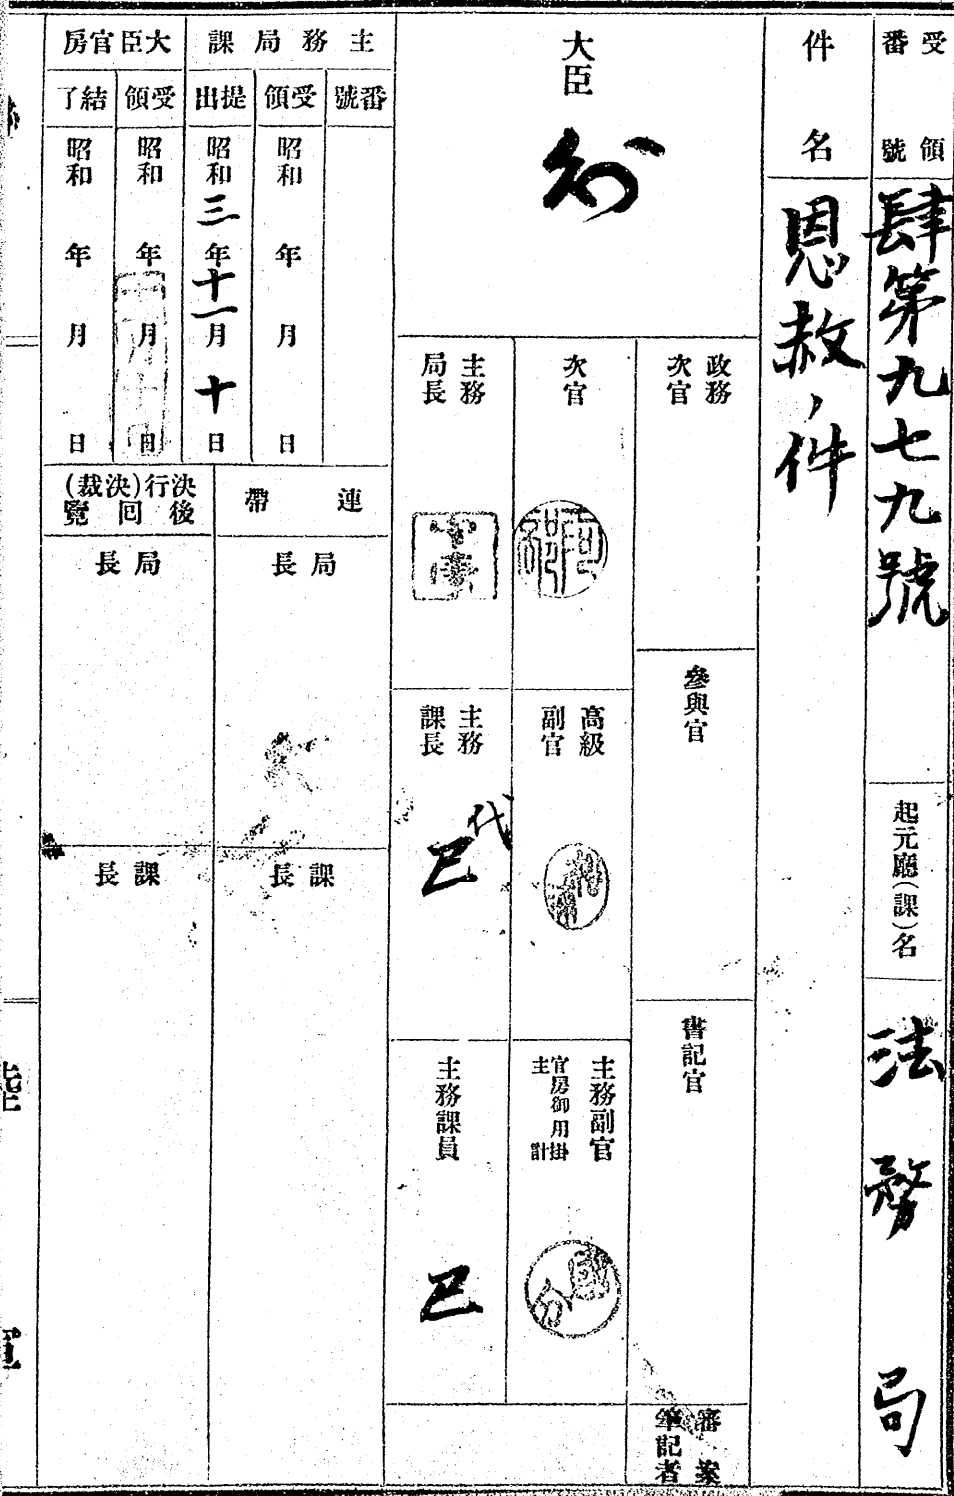 受領番號
肆第九七九號
起元廳(課)名
法務局
件名
恩赦ノ件
大臣
政務次官
次官
主務局長
參與官
高級副官
主務課長
代
書記官
主務副官
官房御用掛
主計
主務課員
審案
筆記者
主務局課
番號
受領
昭和 年 月 日
提出
昭和三年十一月十日
大臣官房
受領
昭和 年 月 日
結了
昭和 年 月 日
連帶
局長
課長
決行(決裁)
後回覽
局長
課長